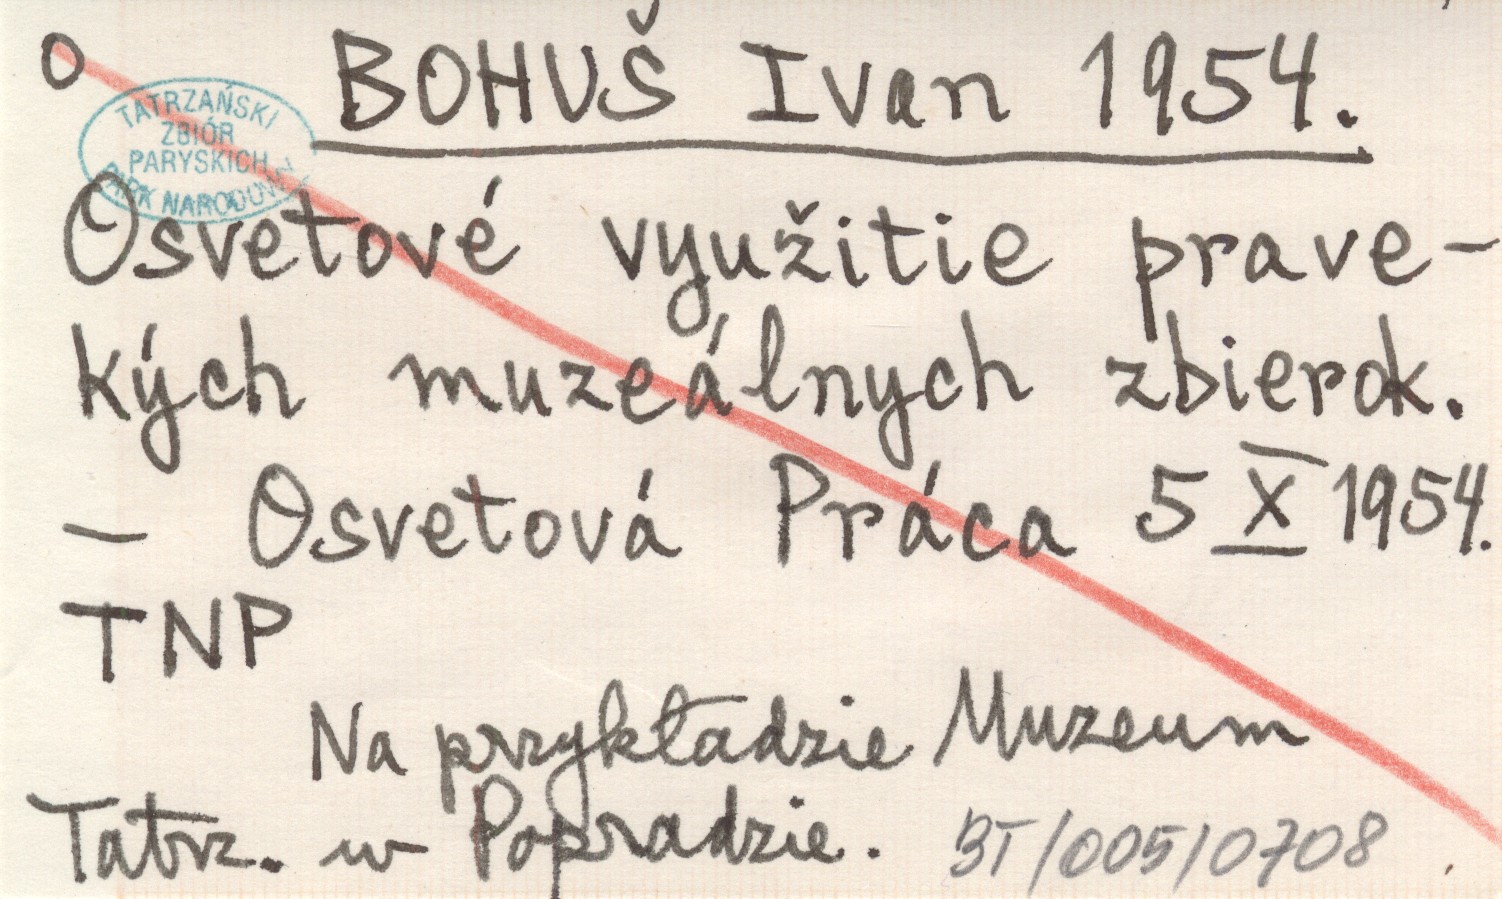 o BOHUŠ Ivan 1954.
TATRZAŃSKI
ZBIÓR
PARYSKICH
PARK NARODOWY
Osvetové využitie prave-
kých muzeálnych zbierok.
– Osvetová Práca 5 X 1954.
TNP
Na przykładzie Muzeum
Tatrz. w Popradzie. BT/005/0708